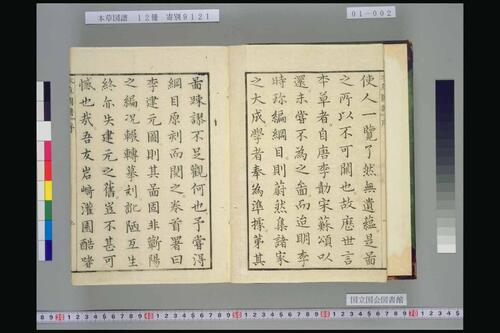 本草図譜 12冊 寄別9121
01-002
使人一覽了然無遺蘊是啚
之所以不可闕也故歴世言
本草者自唐李勣宋蘇頌以
還未嘗不為之啚而迨明李
時珍編綱目則蔚然集諸家
之大成學者奉為準據第其
啚踈謬不足觀何也予嘗得
綱目原刻而閲之卷首署曰
李建元圖則其啚固非蘄陽
之編况輾轉摹刻訛陋互生
終亦失建元之舊豈不甚可
憾也哉吾友岩﨑灌園酷嗜
国立国会図書館